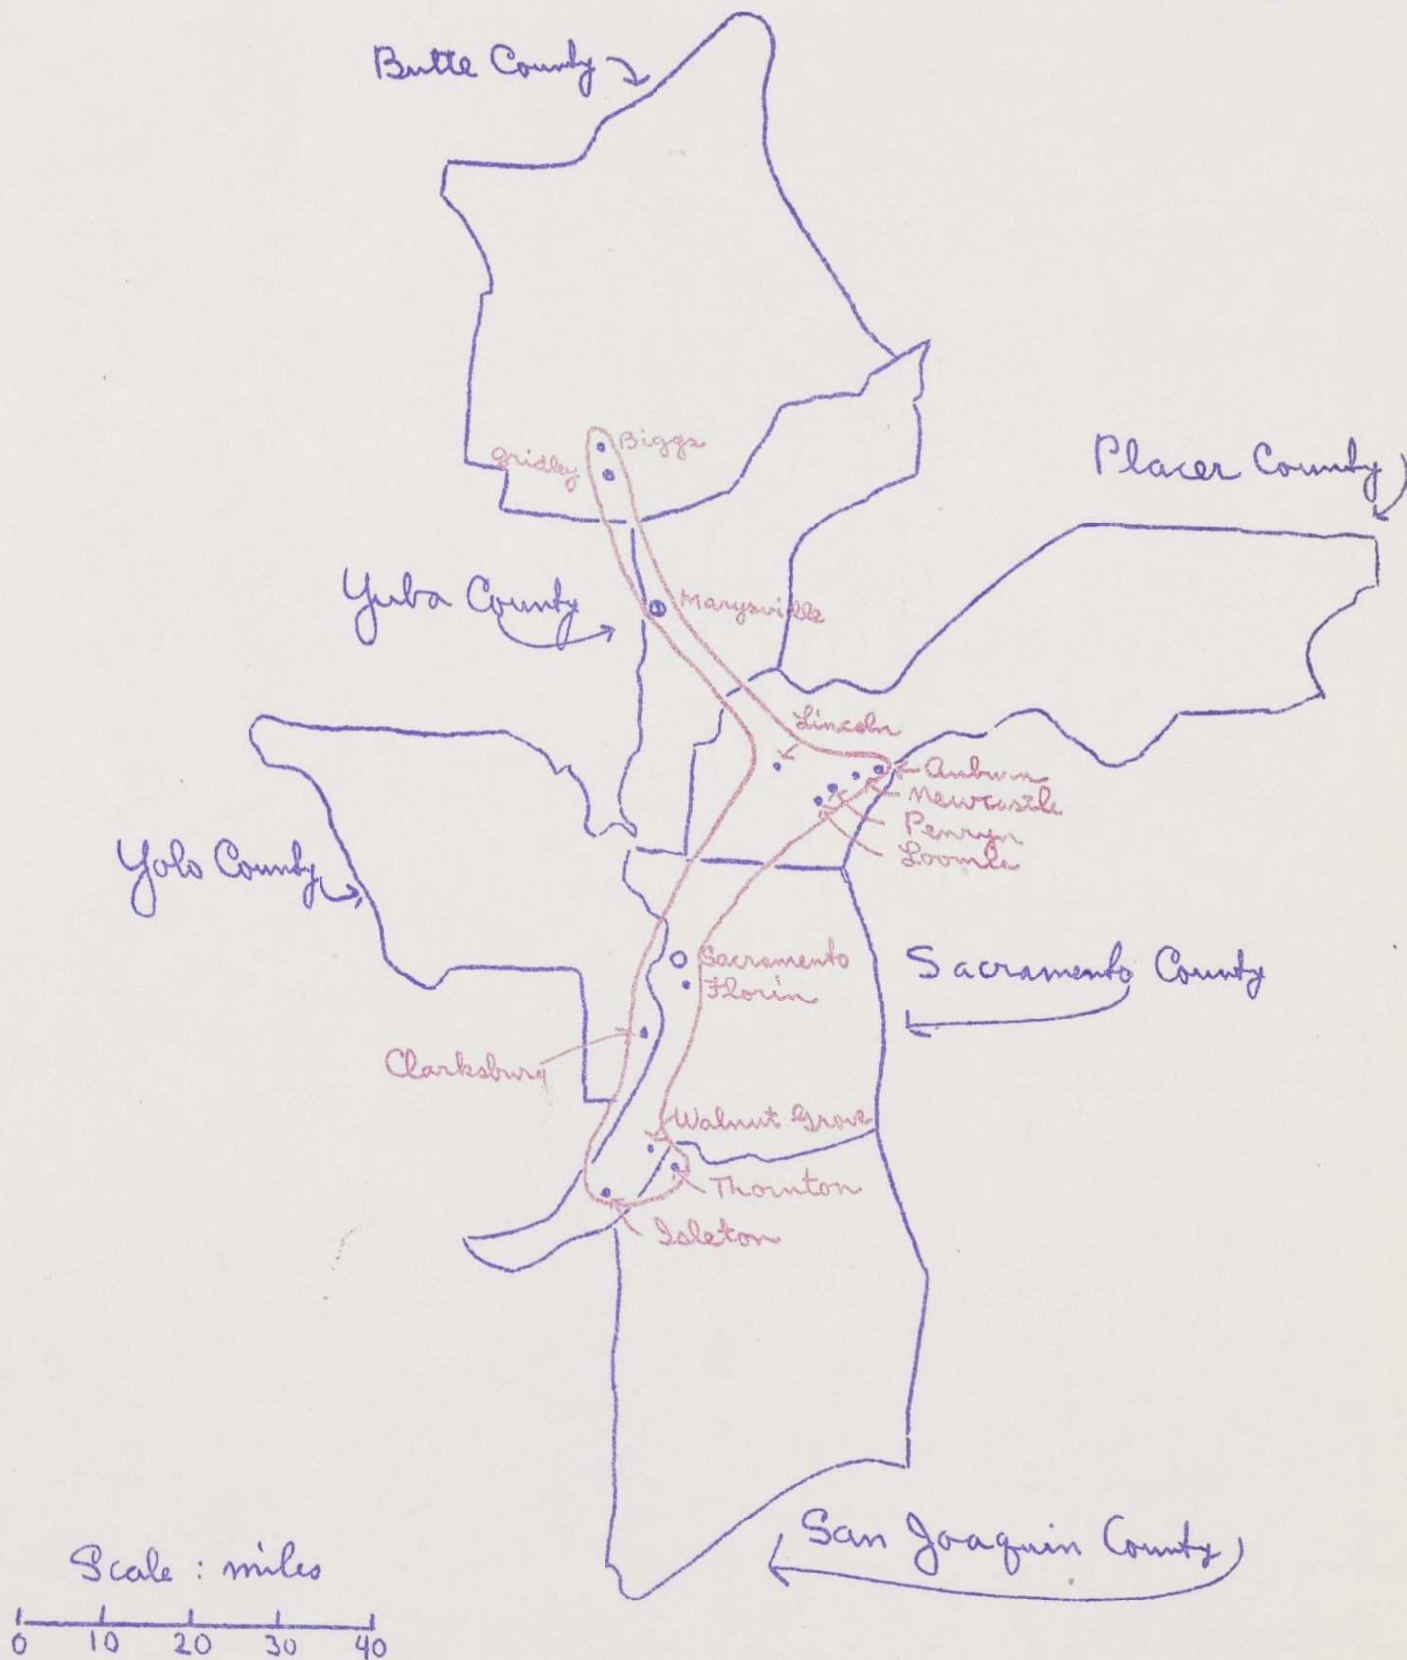 Butte County
Biggs
Gridley
Placer County
Yuba County
Marysville
Lincoln
Auburn
Newcastle
Penryn
Loomis
Yolo County
Sacramento
Florin
Sacramento County
Clarksburg
Walnut Grove
Thornton
Isleton
San Joaquin County
Scale : miles
0 10 20 30 40